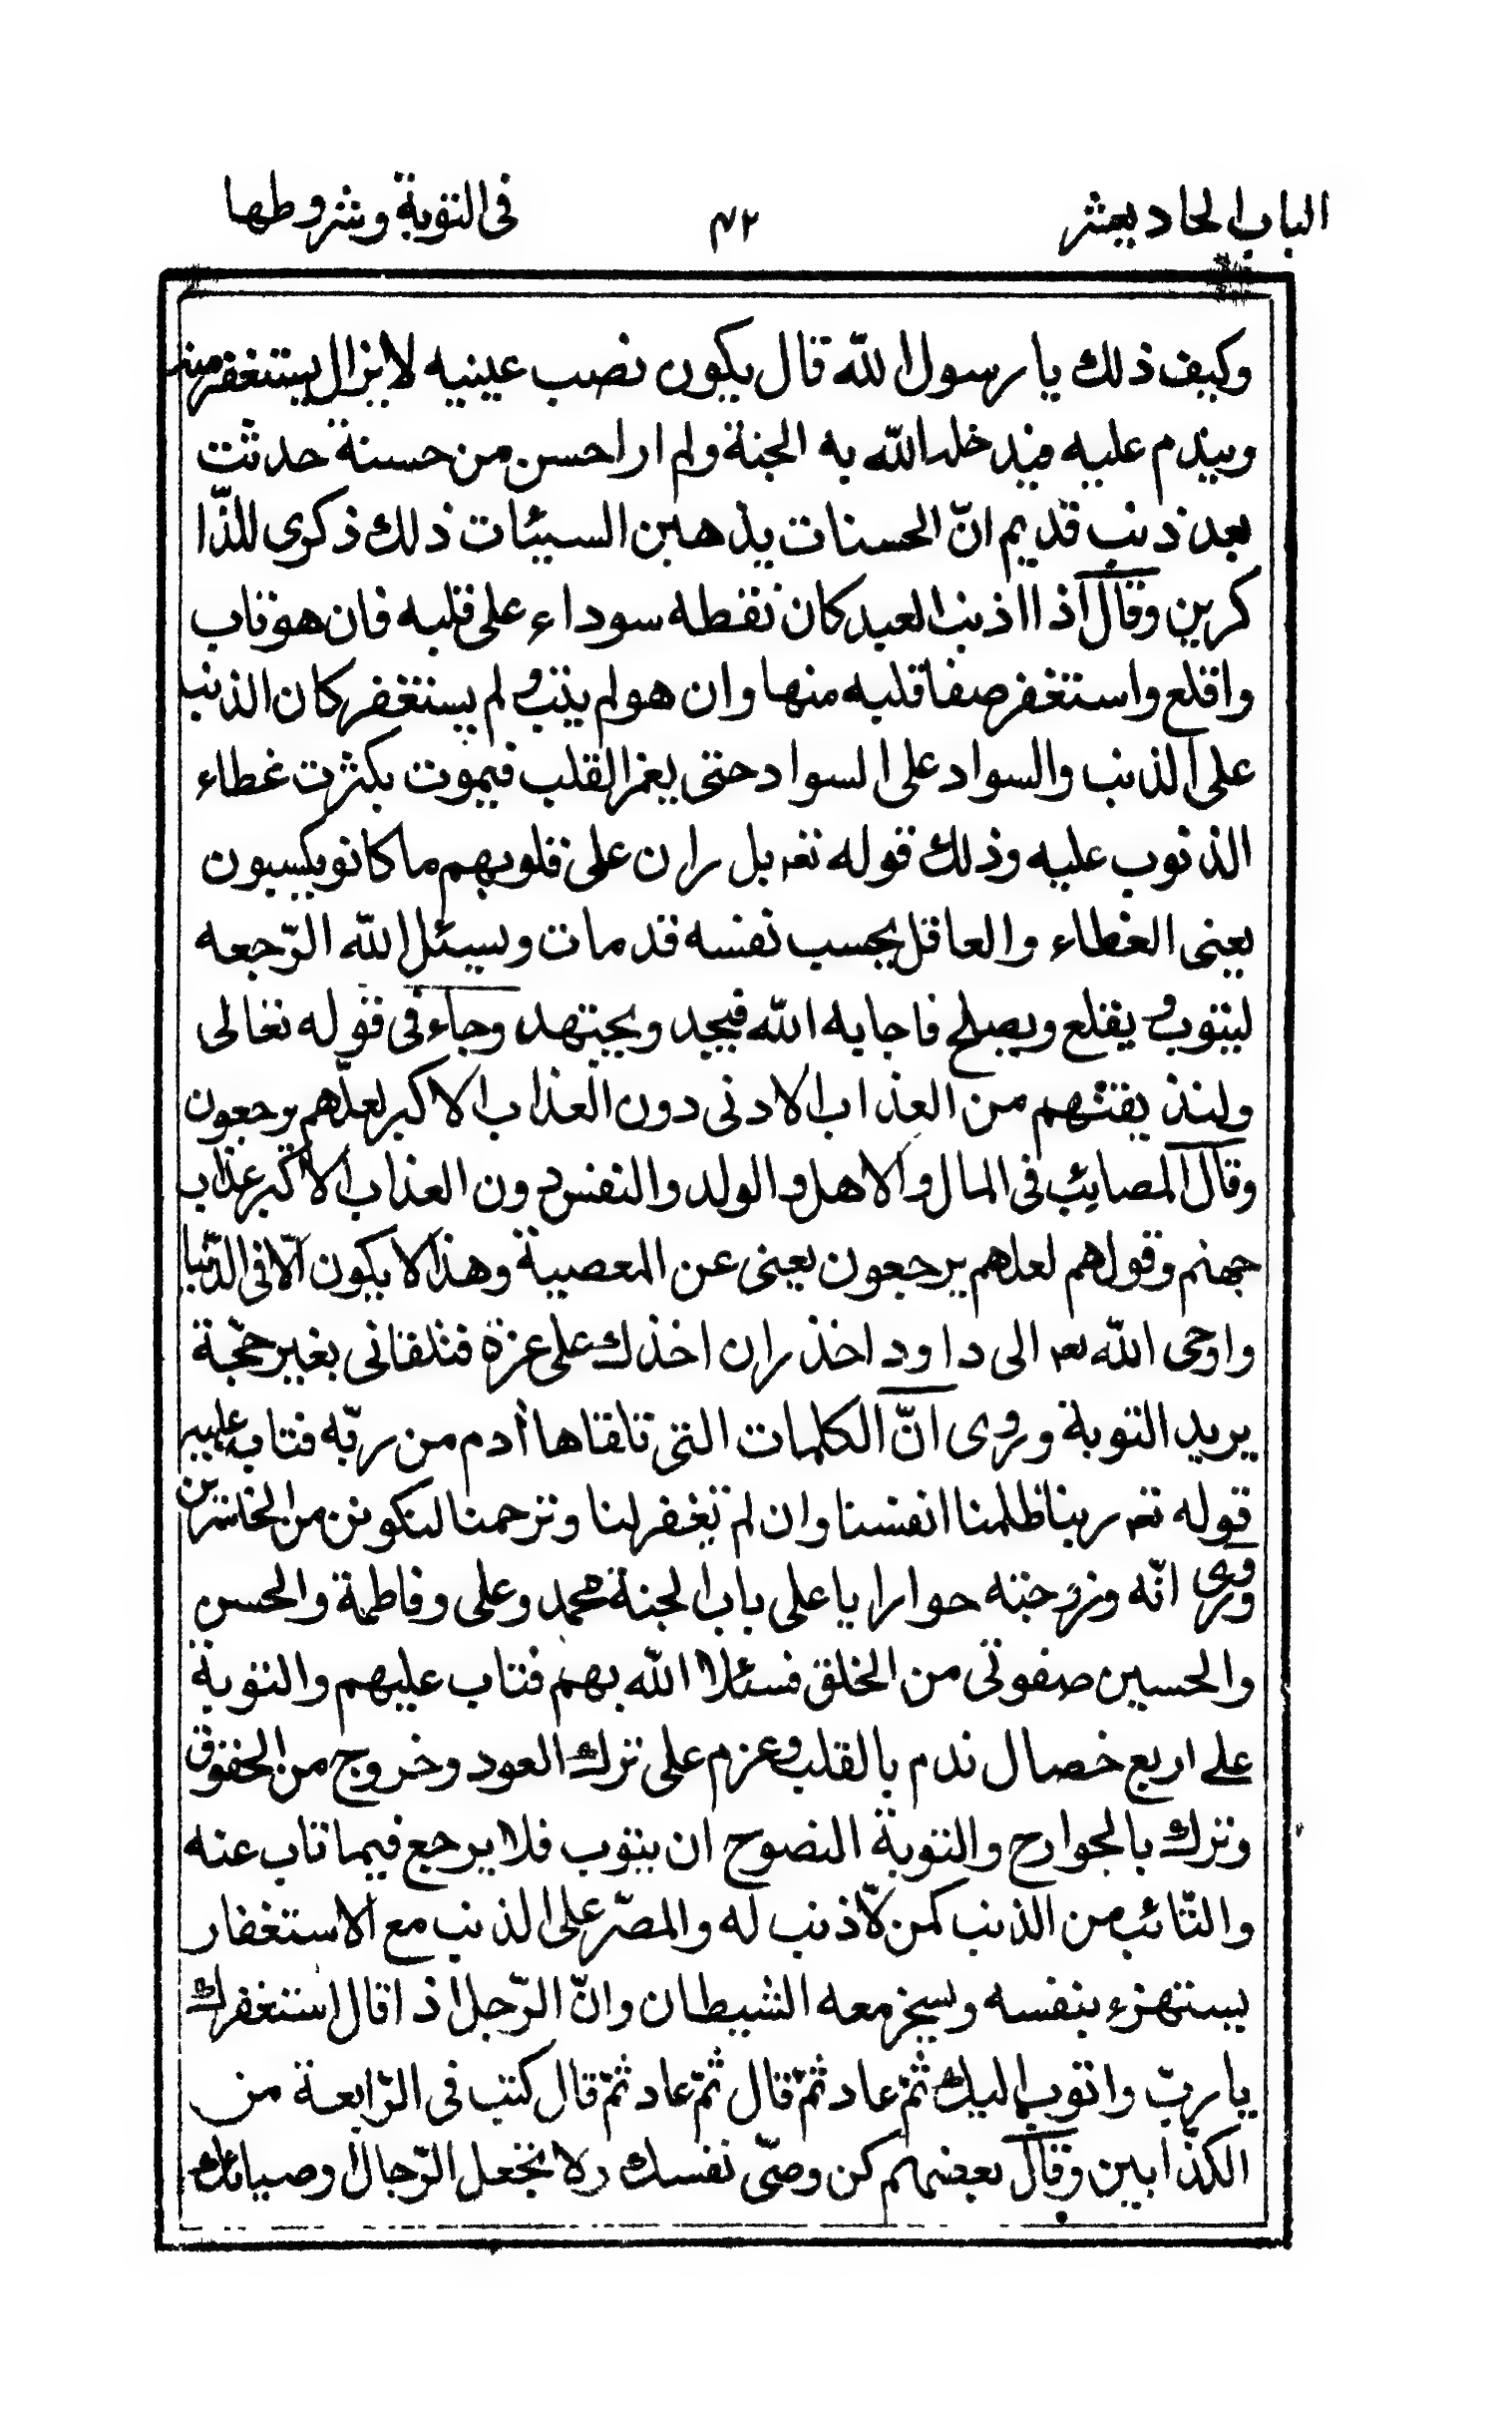 الباب الحاد يعشر ٤٢ فى التوبة وشروطها
وكيف ذلك يا رسول الله قال يكون نصب عينيه لا يزال يستغفر منه
ويندم عليه فيدخله الله به الجنة ولم ار احسن من حسنة حدثت
بعد ذنب قديم انّ الحسنات يذهبن السيئات ذلك ذكرى للذّا
كرين وقال اذا اذنب العبد كان نقطه سوداء على قلبه فان هو تاب
واقلع واستغفر صفا قلبه منها وان هو لم يتب و لم يستغفر كان الذنب
على الذنب والسواد على السواد حتى يغمر القلب فيموت بكثرت غطاء
الذنوب عليه وذلك قوله تعه بل ران على قلوبهم ما كانو يكسبون
يعنى الغطاء والعاقل يحسب نفسه قد مات ويسئل الله الرّجعه
ليتوب و يقلع ويصلح فاجابه الله فيجد ويجتهد وجاء فى قوله تعالى
ولنذ يقنّهم من العذاب الادنى دون العذاب الاكبر لعلّهم يرجعون
وقال المصايئب فى المال والاهل والولد والنفس دون العذاب الاكبر عذاب
جهنم وقولهم لعلهم يرجعون يعنى عن المعصية وهذا لا يكون الّا فى الدّنيا
واوحى الله تعه الى داود احذر ان اخذك على غرة فتلقانى بغير حجّة
يريد التوبة وروى انّ الكلمات التى تلقاها أدم من ربّه فتاب عليه
قوله تعه ربنا ظلمنا انفسنا وان لم تغفر لنا وترحمنا لنكونن من الخاسرين
وروى انّه وزوجته حوا رايا على باب الجنة محمد وعلى وفاطمة والحسن
والحسين صفوتى من الخلق فسئلا الله بهم فتاب عليهم والتوبة
على اربع خصال ندم بالقلب و عزم على ترك العود وخروج من الحقوق
وترك بالجوارح والتوبة النصوح ان يتوب فلا يرجع فيما تاب عنه
والتّائب من الذنب كمن لّا ذنب له والمصّر على الذنب مع الاستغفار
يستهزء بنفسه ويسخر معه الشيطان وانّ الرّجل اذا قال استغفرك
يا ربّ واتوب اليك ثمّ عاد ثمّ قال ثمّ عاد ثمّ قال كتب فى الرّابعة من
الكذّابين وقال بعضهم كن وصّى نفسك ولا تجعل الرّجال اوصيائك